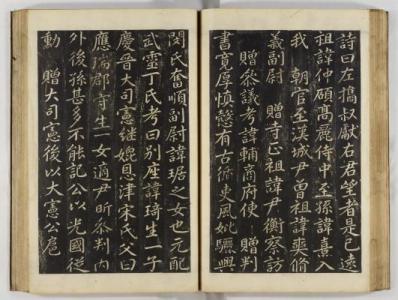 詩曰左攜叔獻右君望者是已遠
祖諱仲碩高麗侍中至孫諱熹入
我 朝官至漢城尹曾祖諱 脩
義副尉 贈寺正祖諱尹衡察訪
贈參議考諱輔商府使 贈判
書寬厚慎慤有古循吏風妣驪興
閔氏奮順副尉諱琚之女也元配
武靈丁氏考曰別座諱琦生一子
慶晉大司憲繼媲恩津宋氏父曰
應瑞郡守生一女適尹昕叅判內
外後孫甚多不能記公以光國從
勳 贈大司憲後以大憲公扈